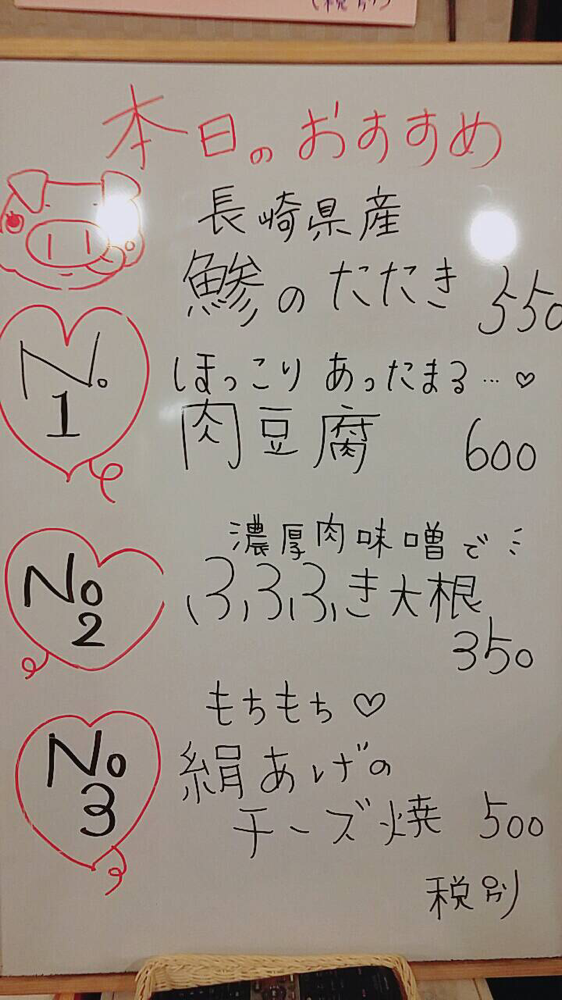 (税別)
本日のおすすめ
長崎県産
鯵のたたき 550
No.1
ほっこり あったまる…♡
肉豆腐 600
No2
濃厚肉味噌で
ふろふき大根
350
No3
もちもち♡
絹あげの
チーズ焼 500
税別